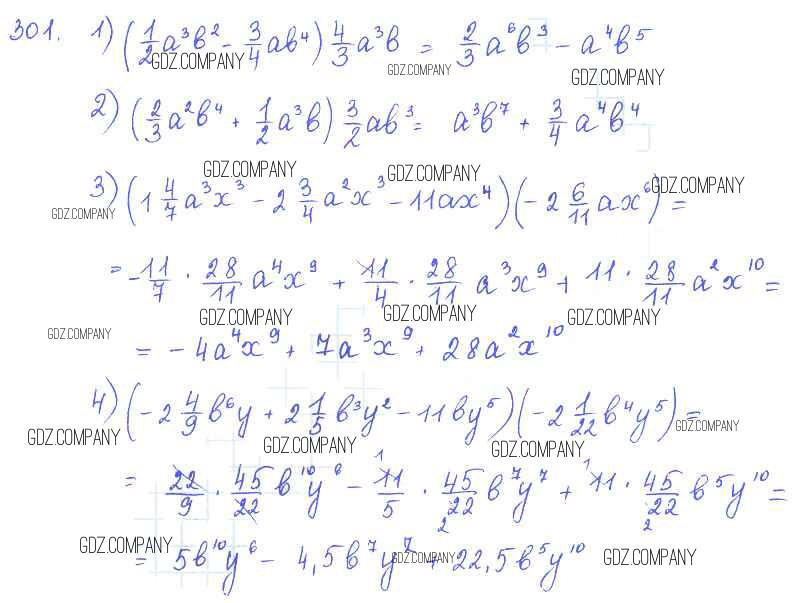 301. 1) (1/2 a³b² - 3/4 ab⁴) 4/3 a³b = 2/3 a⁶b³ - a⁴b⁵
GDZ.COMPANY GDZ.COMPANY GDZ.COMPANY
2) (2/3 a²b⁴ + 1/2 a³b) 3/2 ab³ = a³b⁷ + 3/4 a⁴b⁴
GDZ.COMPANY GDZ.COMPANY GDZ.COMPANY
3) (1 4/7 a³x³ - 2 3/4 a²x³ - 11ax⁴)(-2 6/11 ax⁶) =
GDZ.COMPANY
= -11/7 · 28/11 a⁴x⁹ + 11/4 · 28/11 a³x⁹ + 11 · 28/11 a²x¹⁰ =
GDZ.COMPANY GDZ.COMPANY GDZ.COMPANY
GDZ.COMPANY
= -4a⁴x⁹ + 7a³x⁹ + 28a²x¹⁰
4) (-2 4/9 b⁶y + 2 1/5 b³y² - 11by⁵)(-2 1/22 b⁴y⁵) =
GDZ.COMPANY GDZ.COMPANY GDZ.COMPANY GDZ.COMPANY
= 22/9 · 45/22 b¹⁰y⁶ - 11/5 · 45/22 b⁷y⁷ + 11 · 45/22 b⁵y¹⁰ =
1 2 1 2
GDZ.COMPANY GDZ.COMPANY GDZ.COMPANY
= 5b¹⁰y⁶ - 4,5b⁷y⁷ + 22,5b⁵y¹⁰